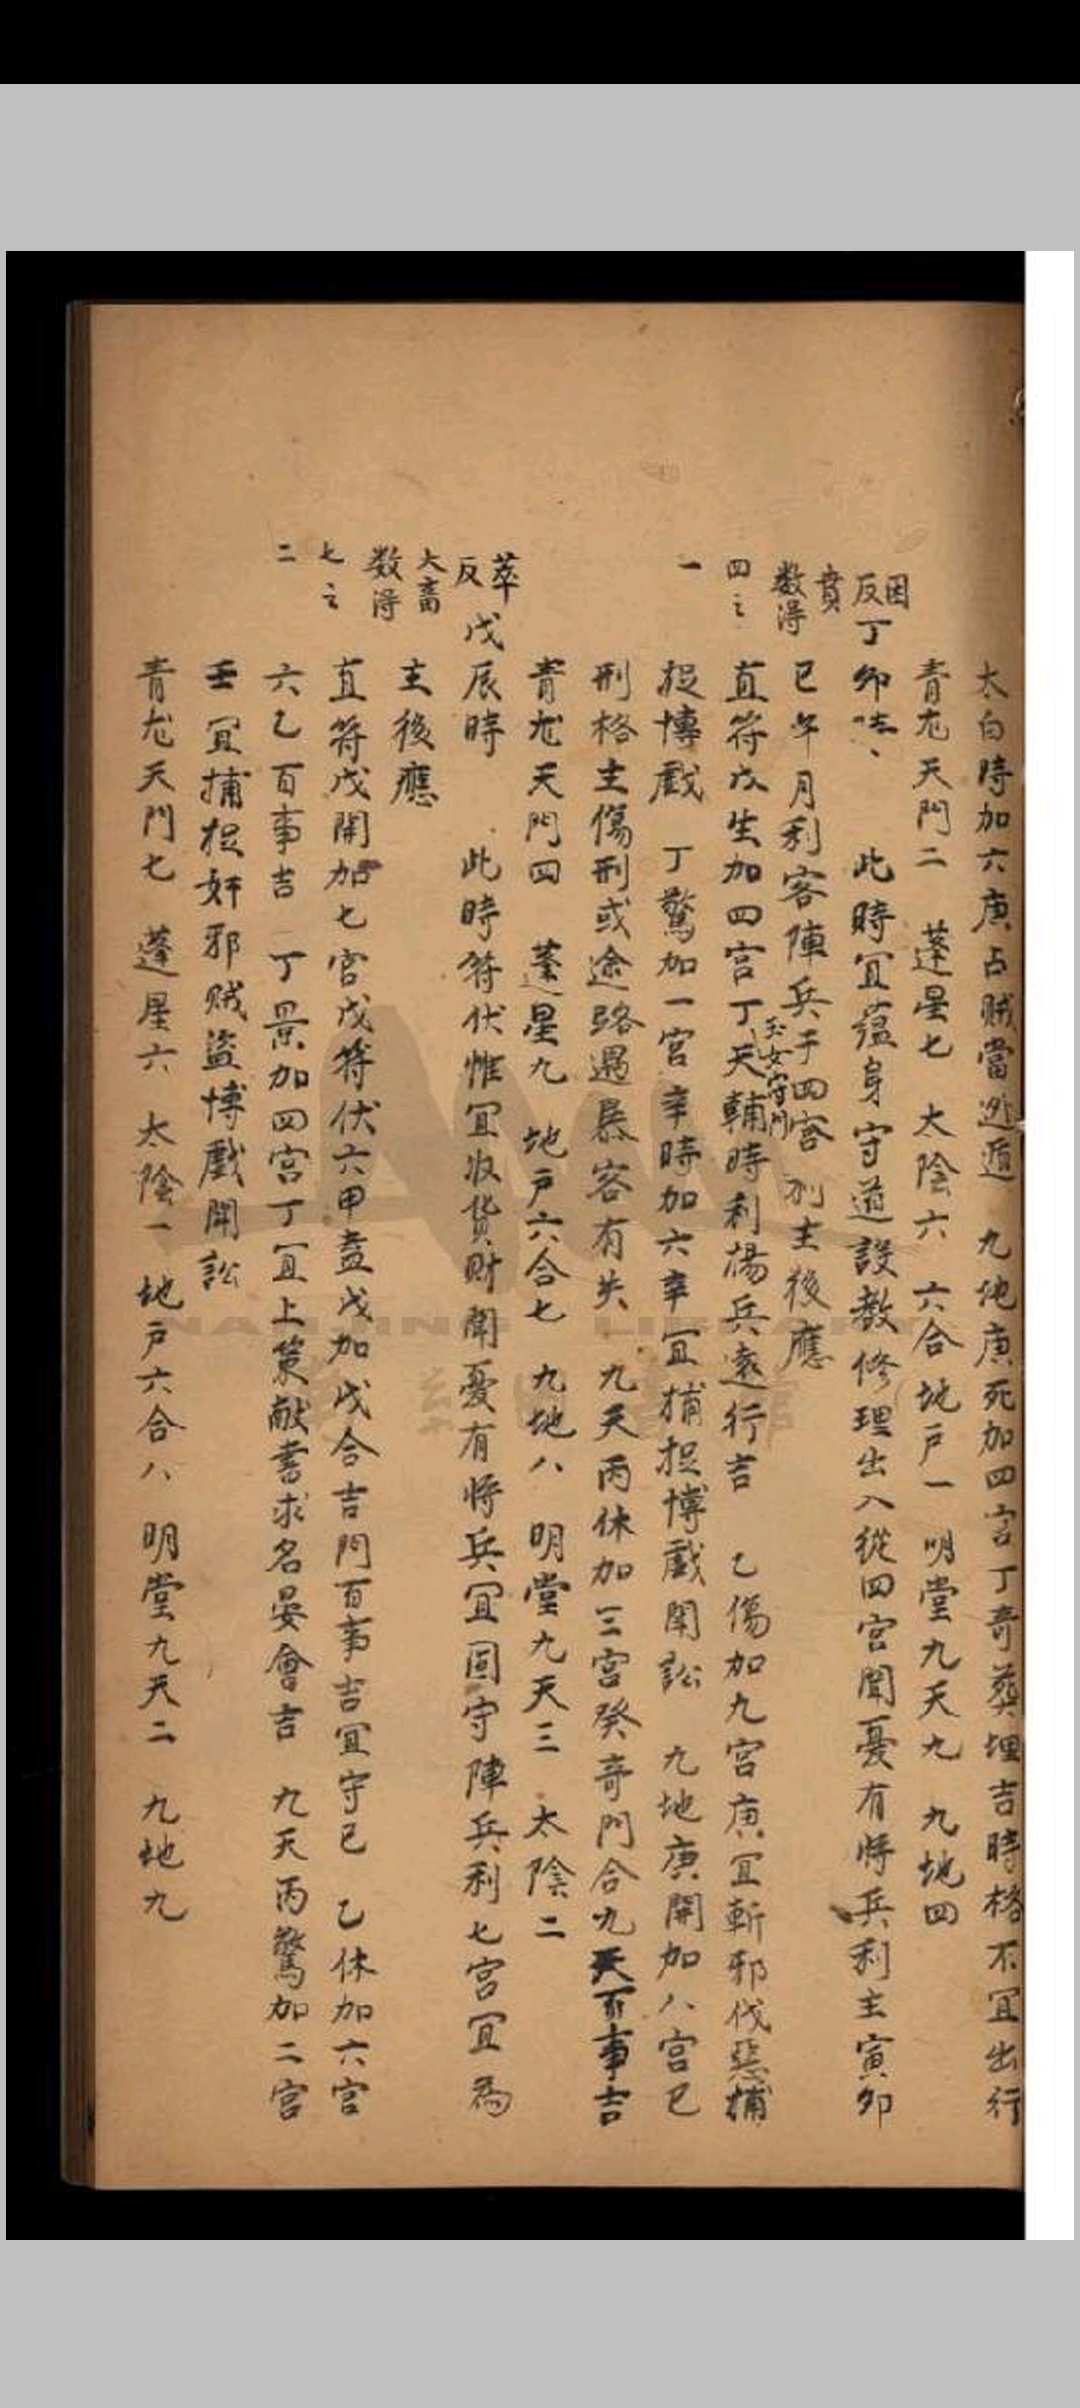 太白時加六庚占賊當逃遁　九地庚死加四宮丁奇葬埋吉時格不宜出行
青龙天門二　蓬星七　太陰六　六合地戸一　明堂九天九　九地四
因
反
賁
数得
四之
一
丁卯時　此時宜蕴身守道設教修理出入從四宮聞憂有將兵利主寅卯
巳午月利客陣兵于四宮利主後應
直符戊生加四宮丁天輔時利揚兵遠行吉　乙傷加九宮庚宜斬邪伐惡捕
玉女守門
捉博戲　丁驚加一宮辛時加六辛宜捕捉博戲鬧訟　九地庚開加八宮己
刑格主傷刑或途路遇暴客有失　九天丙休加三宮癸奇門合九天百事吉
青龙天門四　蓬星九　地戸六合七　九地八　明堂九天三　太陰二
萃
反
大畜
数得
七之
二
戊辰時　此時符伏惟宜收货财聞憂有將兵宜固守陣兵利七宮宜為
主後應
直符戊開加七宮戊符伏六甲盖戊加戊合吉門百事吉宜守己　乙休加六宮
六乙百事吉　丁景加四宮丁宜上策献書求名晏會吉　九天丙驚加二宮
壬宜捕捉奸邪賊盗博戲鬧訟
青龙天門七　蓬星六　太陰一　地戸六合八　明堂九天二　九地九